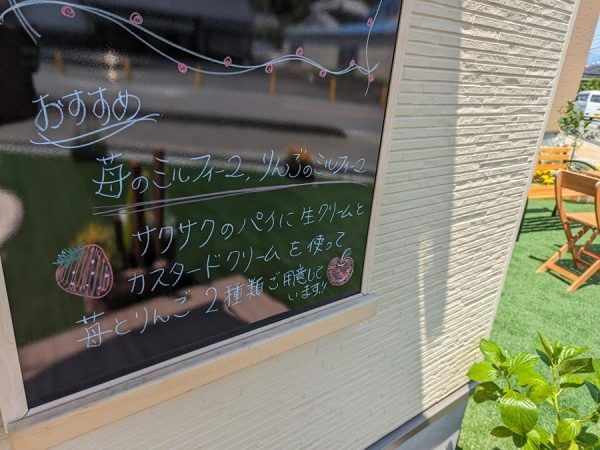 おすすめ
苺のミルフィーユ、りんごのミルフィーユ
サクサクのパイに生クリームと
カスタードクリームを使って
苺とりんご2種類ご用意して
います!!